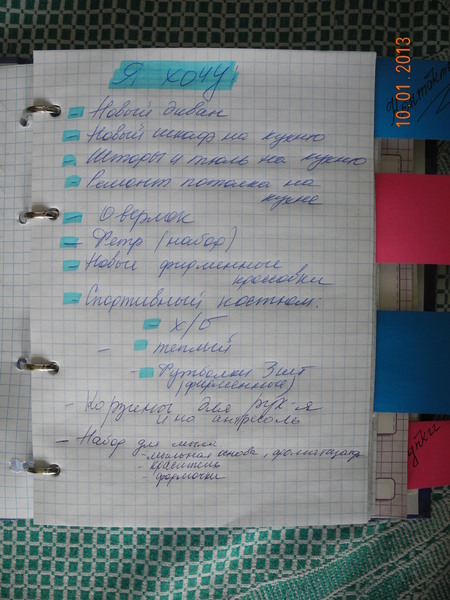 Я хочу!
- Новый диван
- Новый шкаф на кухню
- Шторы и тюль на кухню
- Ремонт потолка на
кухне
- Оверлок
- Фетр (набор)
- Новые фирменные
кроссовки
- Спортивный костюм:
- х/б
- теплый
- Футболки 3 шт
(фирменные)
- Корзины для
и на антресоль
- Набор для мыла
- мыльная основа, ароматизатор
- краситель
- формочки
10.01.2013